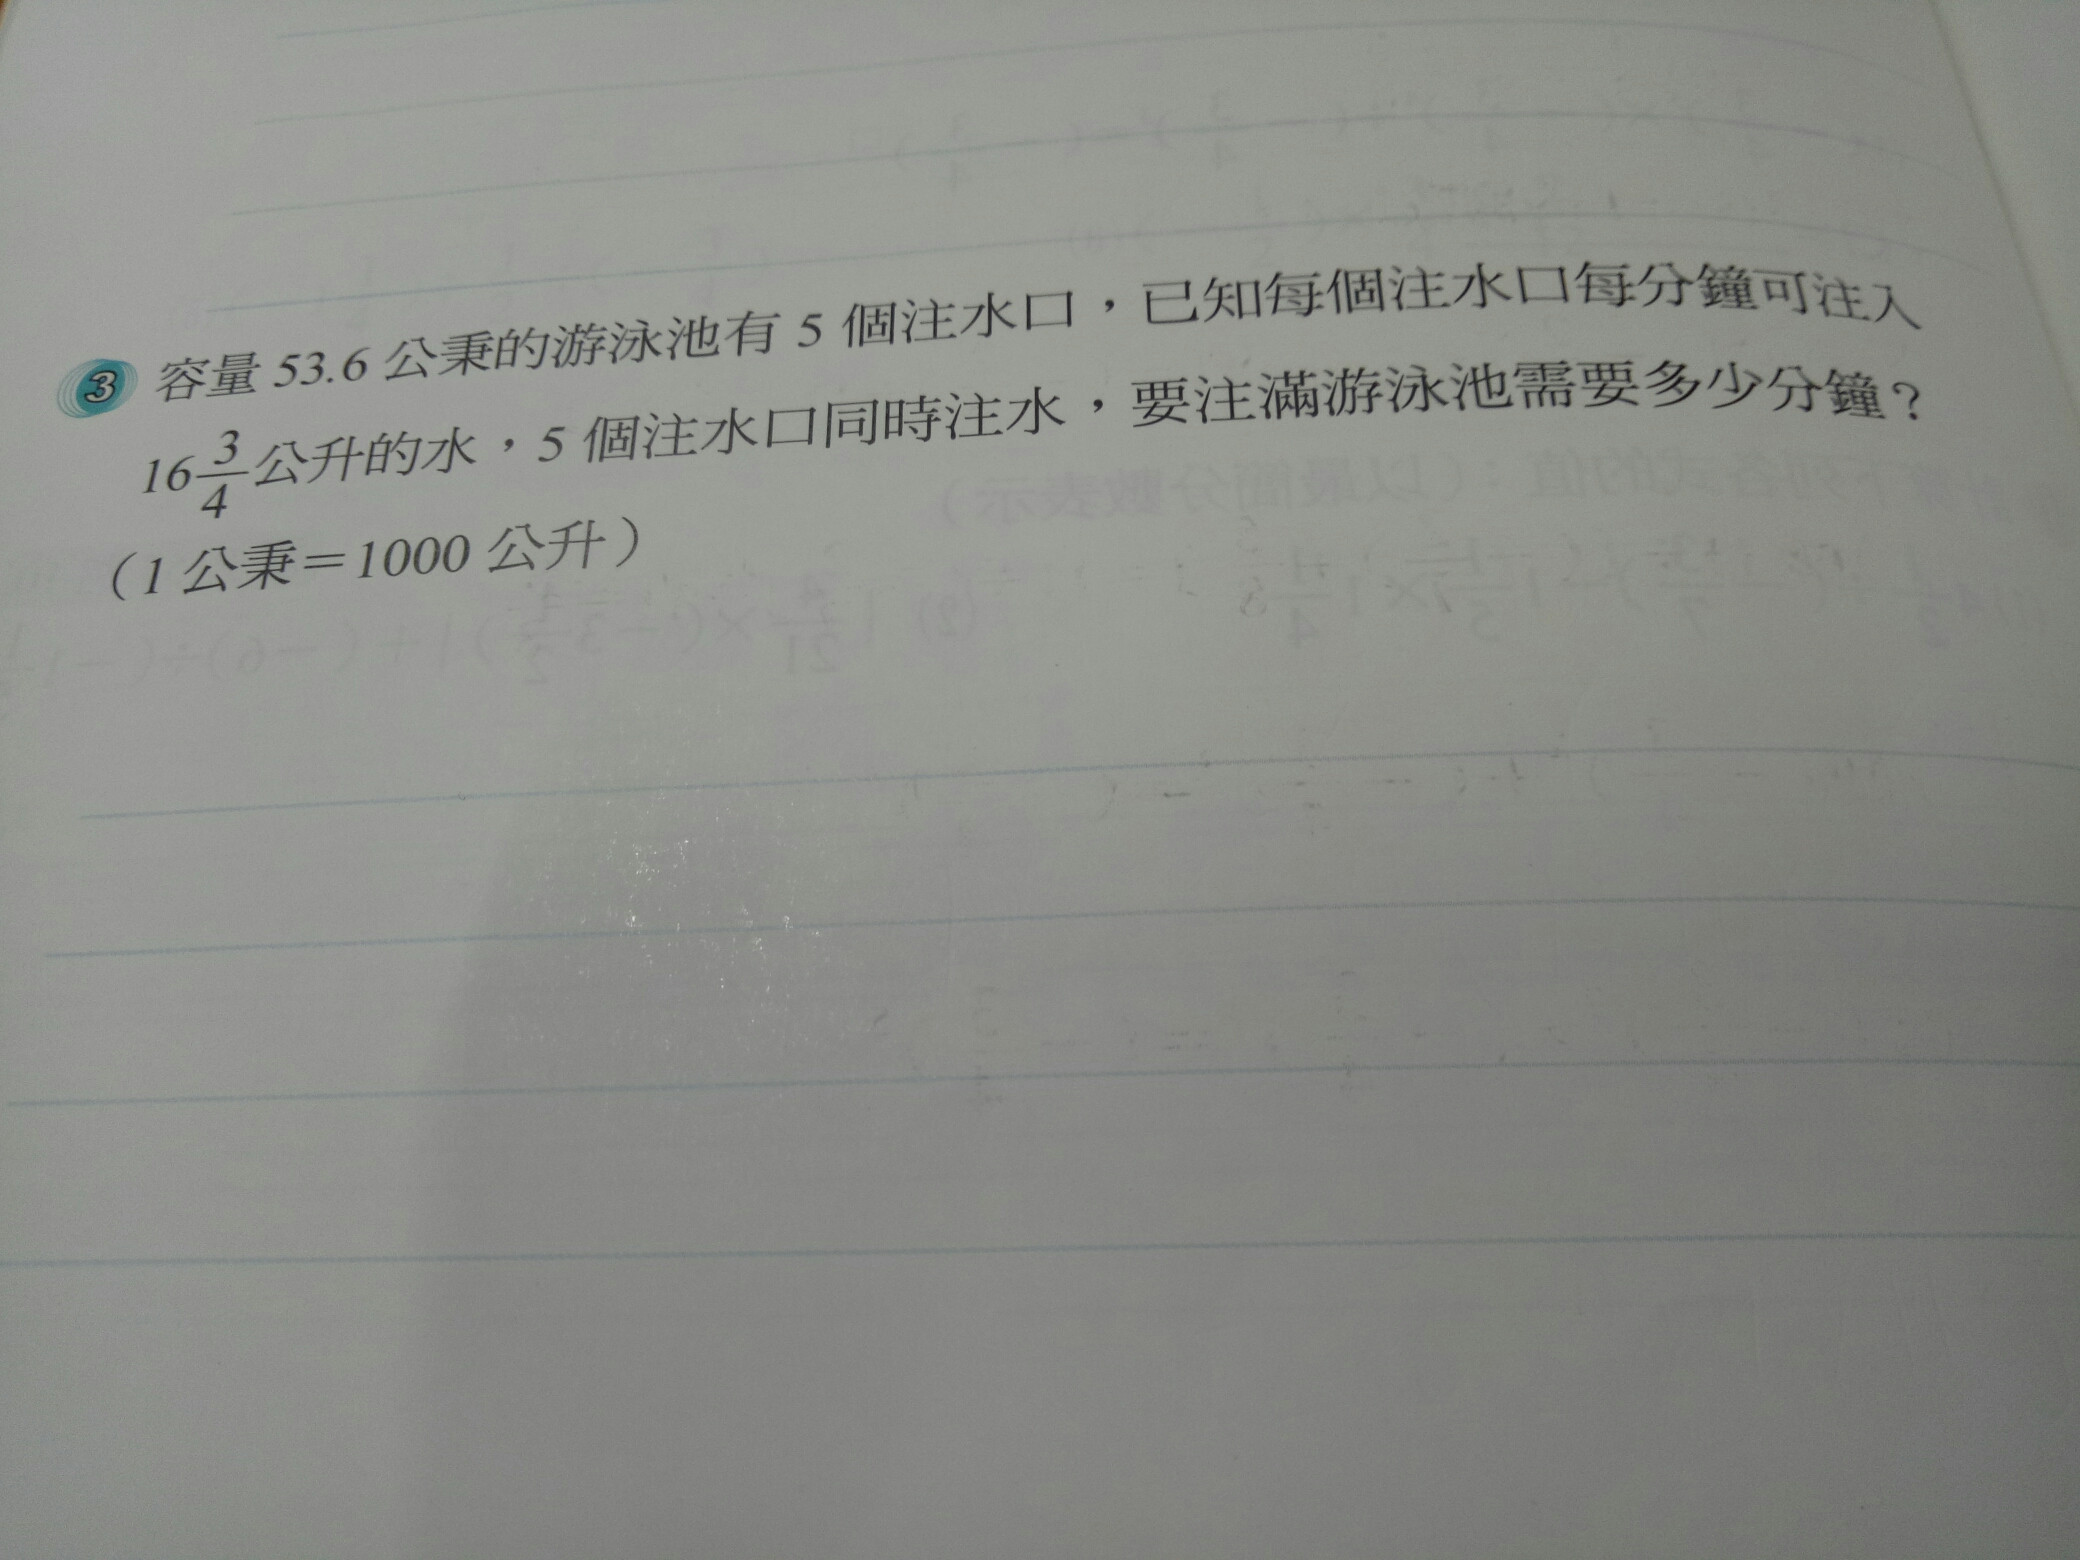 3 容量 53.6 公秉的游泳池有 5 個注水口，已知每個注水口每分鐘可注入
16 3/4 公升的水，5 個注水口同時注水，要注滿游泳池需要多少分鐘？
（1 公秉＝1000 公升）